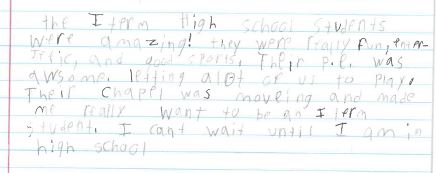 the Iterm High school students
were amazing! they were really fun, ener-
Jetic, and good sports. Their p.e. was
awsome. letting alot of us to play.
Their chapel was moveing and made
me really want to be an Iterm
student. I cant wait until I am in
high school